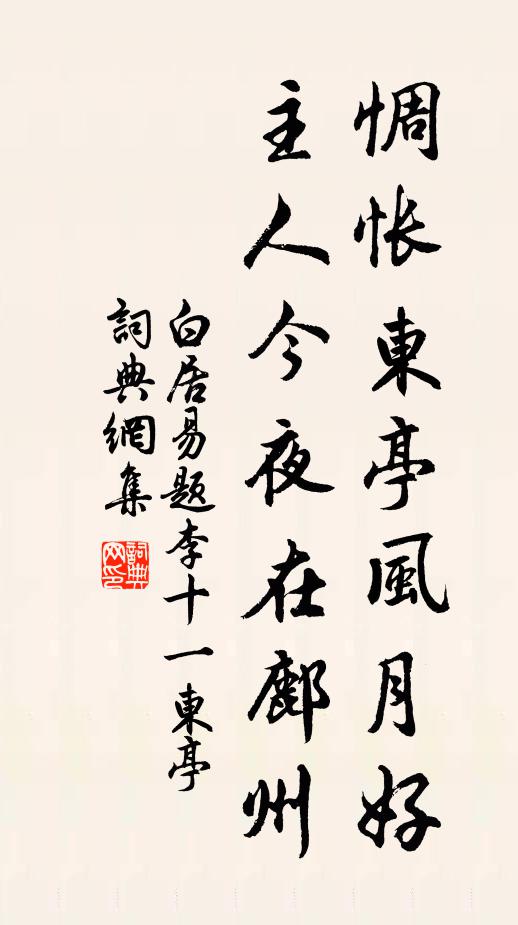 惆怅東亭風月好
主人今夜在鄜州
白居易題李十一東亭
詞典網集
詞典网印